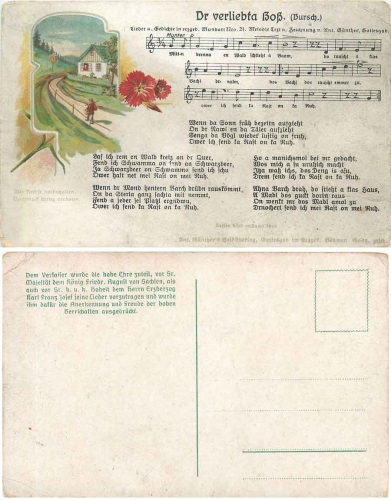 Dr verliebta Boß. (Bursch.)
Lieder u. Gedichte in erzgeb. Mundart Nro. 21. Melodie Text u. Zeichnung v. Ant. Günther, Gottesgab.
Munter
Mitten drinna en Wald
Bachl
ower ich fend ka Rast on ka Ruh.
Wenn da Sonn früh bezeitn aufgieht
On de Nawl en da Täler aufzieht
Senga da Vögl wieder lustig on fruh,
Ower ich fend ka Rast on ka Ruh.
Laf ich rem en Wald kreiz on dr Quer,
Fend ich Schwamma on fend on Schwarzbeer,
Ja Schwarzbeer on Schwamma fend ich schu
Ower halt net mei Rast on mei Ruh.
Wenn dr Mond hentern Barch drübn rauskömmt,
On da Sterla ganz sachta mit nemmt,
Fend a jeder sei Platzl
Ower ich fend ka Rast on ka Ruh.
Ho a manichsmol bei mr gedacht,
Wos mich a su uruhich macht
Itza waß ichs, dos Deng is a su,
Drem fend ich ka Rast on ka Ruh.
Ahna Barch drubn, do stieht a klas Haus,
A Madl dos guckt dortn raus
On wenk mr dos Madl amol zu
Drnochert fend ich mei Rast on mei Ruh.
Dem Verfasser wurde die hohe Ehre zuteil, vor Sr.
Majestät dem König Friedr. August von Sachsen, als
auch vor Sr. k. u. k. Hoheit dem Herrn Erzherzog
Karl Franz Josef seine Lieder vorzutragen und wurde
ihm dafür die Anerkennung und Freude der hohen
Herrschaften ausgedrückt.